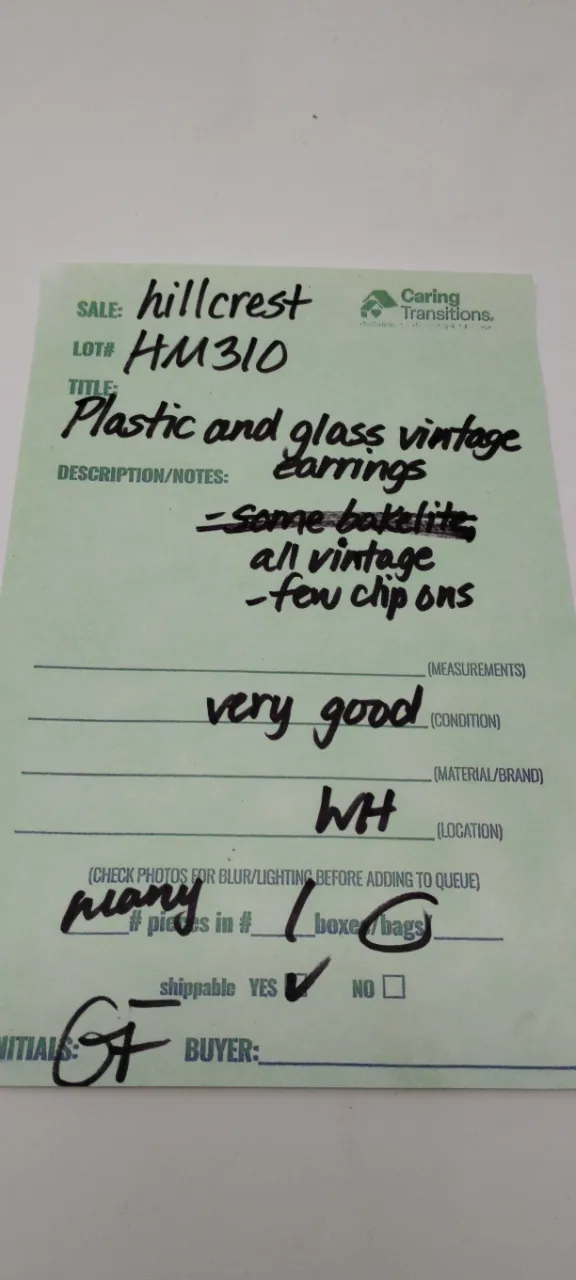 SALE: hillcrest
Caring
Transitions.
LOT# HM310
TITLE:
Plastic and glass vintage
earrings
DESCRIPTION/NOTES:
- some bakelite
all vintage
- few clip ons
(MEASUREMENTS)
very good (CONDITION)
(MATERIAL/BRAND)
WH (LOCATION)
(CHECK PHOTOS FOR BLUR/LIGHTING BEFORE ADDING TO QUEUE)
many # pieces in # 1 boxes/bags
shippable YES ✓ NO
NITIALS: GF BUYER: